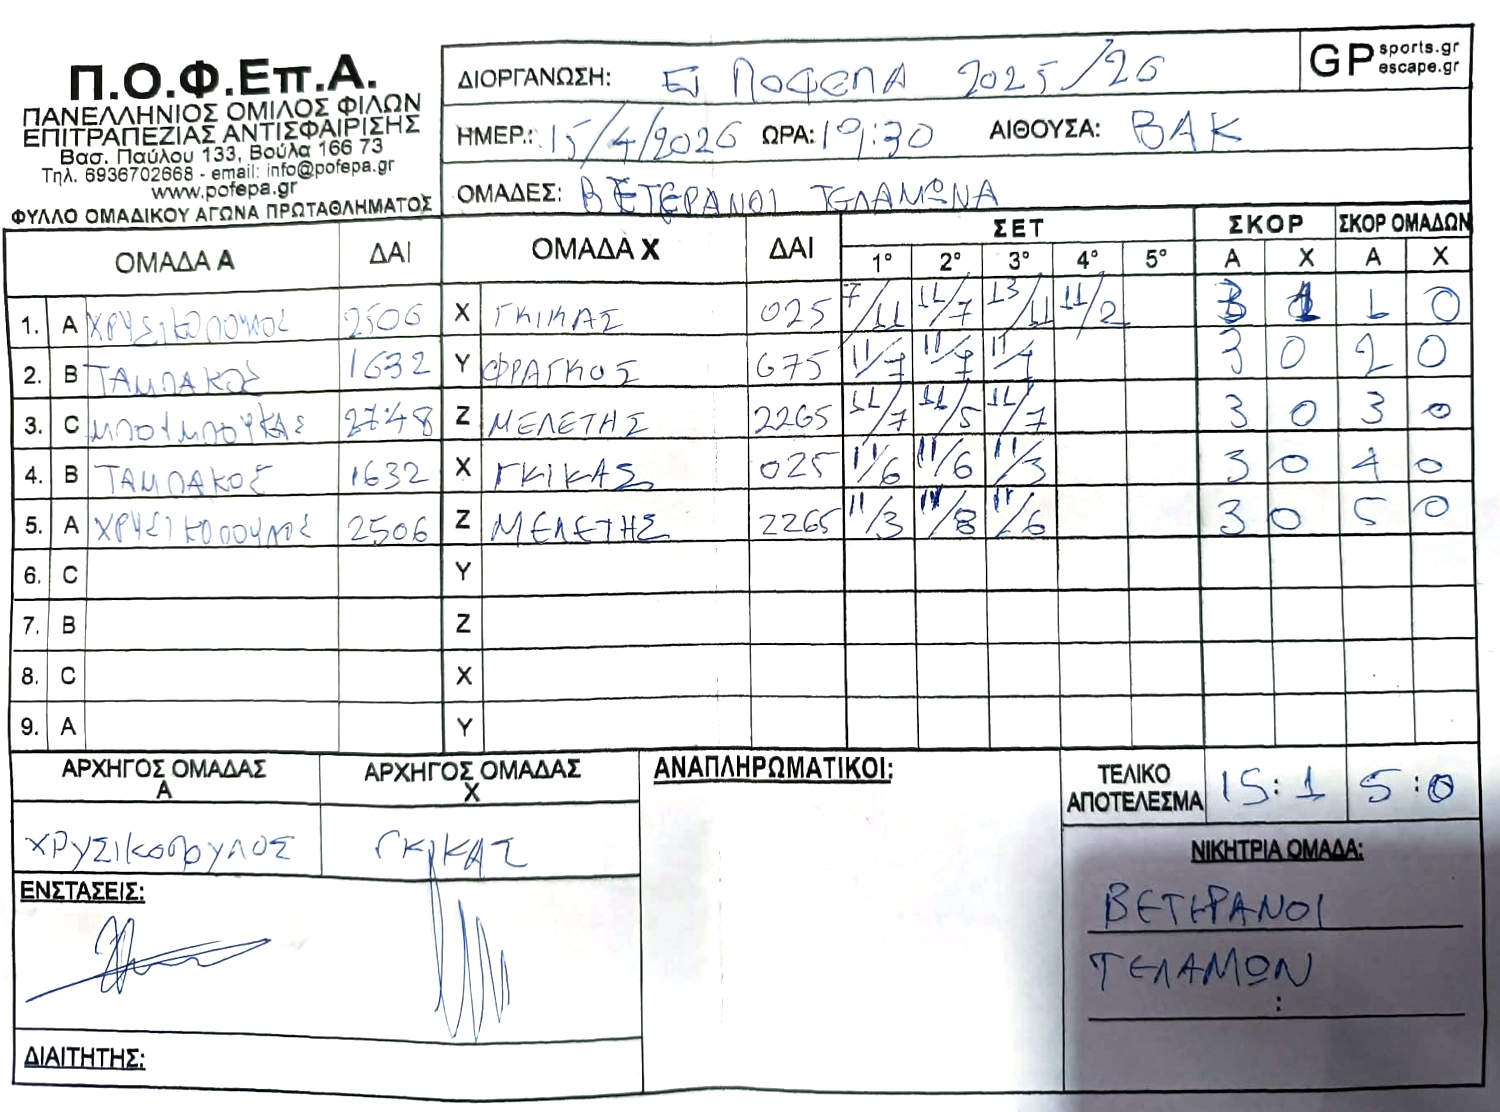 Π.Ο.Φ.Επ.Α.
ΠΑΝΕΛΛΗΝΙΟΣ ΟΜΙΛΟΣ ΦΙΛΩΝ
ΕΠΙΤΡΑΠΕΖΙΑΣ ΑΝΤΙΣΦΑΙΡΙΣΗΣ
Βασ. Παύλου 133, Βούλα 166 73
Τηλ. 6936702668 - email: info@pofepa.gr
www.pofepa.gr
ΦΥΛΛΟ ΟΜΑΔΙΚΟΥ ΑΓΩΝΑ ΠΡΩΤΑΘΛΗΜΑΤΟΣ
ΔΙΟΡΓΑΝΩΣΗ: ΠΟΦΕΠΑ 2025/26
GP sports.gr escape.gr
ΗΜΕΡ.: 15/4/2026 ΩΡΑ: 19:30 ΑΙΘΟΥΣΑ: ΒΑΚ
ΟΜΑΔΕΣ: ΒΕΤΕΡΑΝΟΙ ΤΕΛΑΜΩΝΑ
ΟΜΑΔΑ Α ΔΑΙ ΟΜΑΔΑ Χ ΔΑΙ ΣΕΤ ΣΚΟΡ ΣΚΟΡ ΟΜΑΔΩΝ
1° 2° 3° 4° 5° Α Χ Α Χ
1. Α ΧΡΥΣΙΚΟΠΟΥΛΟΣ 2506 Χ ΓΚΙΚΑΣ 025 7/11 11/7 13/11 11/2 3 1 1 0
2. Β ΤΑΜΠΑΚΟΣ 1632 Υ ΦΡΑΓΚΟΣ 675 11/7 11/7 11/7 3 0 2 0
3. C ΜΠΟΥΜΠΟΥΚΑΣ 2748 Ζ ΜΕΛΕΤΗΣ 2265 11/7 11/5 11/7 3 0 3 0
4. Β ΤΑΜΠΑΚΟΣ 1632 Χ ΓΚΙΚΑΣ 025 11/6 11/6 11/3 3 0 4 0
5. Α ΧΡΥΣΙΚΟΠΟΥΛΟΣ 2506 Ζ ΜΕΛΕΤΗΣ 2265 11/3 11/8 11/6 3 0 5 0
6. C Υ
7. Β Ζ
8. C Χ
9. Α Υ
ΑΡΧΗΓΟΣ ΟΜΑΔΑΣ Α ΑΡΧΗΓΟΣ ΟΜΑΔΑΣ Χ ΑΝΑΠΛΗΡΩΜΑΤΙΚΟΙ:
ΤΕΛΙΚΟ ΑΠΟΤΕΛΕΣΜΑ 15:1 5:0
ΧΡΥΣΙΚΟΠΟΥΛΟΣ ΓΚΙΚΑΣ
ΝΙΚΗΤΡΙΑ ΟΜΑΔΑ:
ΕΝΣΤΑΣΕΙΣ:
ΒΕΤΕΡΑΝΟΙ
ΤΕΛΑΜΩΝ
:
ΔΙΑΙΤΗΤΗΣ: